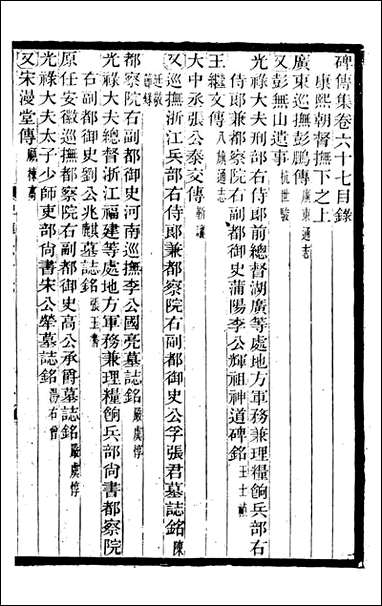 碑傳集卷六十七目錄
康熙朝督撫下之上
廣東巡撫彭鵬傳 廣東通志
又彭無山遺事 杭世駿
光祿大夫刑部右侍郎前總督湖廣等處地方軍務兼理糧餉兵部右
侍郎兼都察院右副都御史蒲陽李公輝祖神道碑銘 王士禎
王繼文傳 八旗通志
大中丞張公泰交傳 靳讓
又巡撫浙江兵部右侍郎兼都察院右副都御史公孚張君墓誌銘 陳
廷敬
都察院右副都御史河南巡撫李公國亮墓誌銘 嚴虞惇
光祿大夫總督浙江福建等處地方軍務兼理糧餉兵部尚書都察院
右副都御史劉公兆麒墓誌銘 張玉書
原任安徽巡撫都察院右副都御史高公承爵墓誌銘 嚴虞惇
光祿大夫太子少師吏部尚書宋公犖墓誌銘 湯右曾
又宋漫堂傳 顧棟高